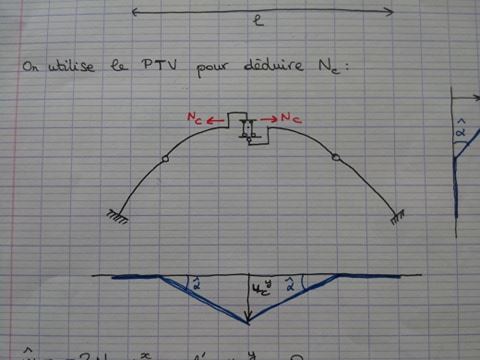 l
On utilise le PTV pour déduire Nc :
Nc Nc
2̂
2̂ ucy 2̂